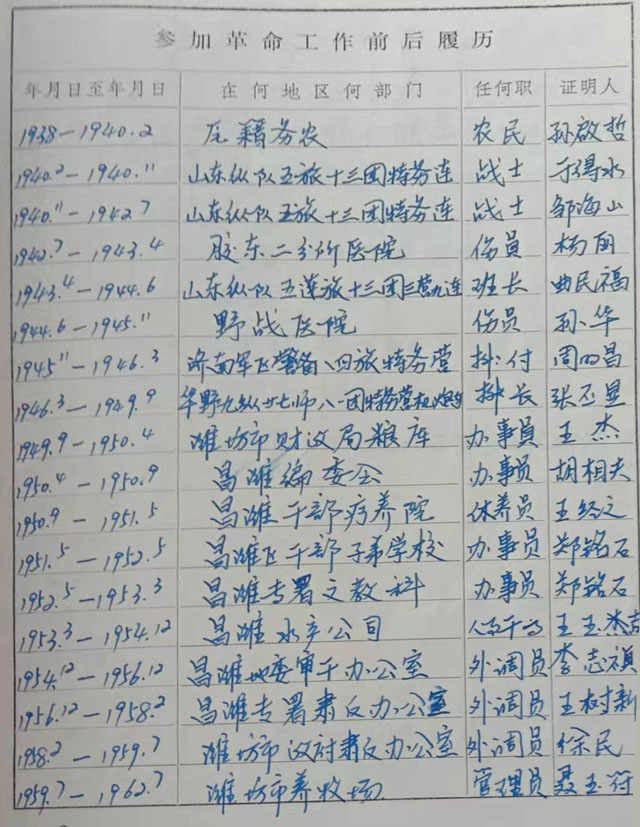 参加革命工作前后履历
年月日至年月日 在何地区何部门 任何职 证明人
1938－1940.2 原籍务农 农民 孙啟哲
1940.2－1940.11 山东纵队五旅十三团特务连 战士 于得水
1940.11－1942.7 山东纵队五旅十三团特务连 战士 邹海山
1942.7－1943.4 胶东二分所医院 伤员 杨丽
1943.4－1944.6 山东纵队五旅十三团三营九连 班长 曲民福
1944.6－1945.11 野战医院 伤员 孙华
1945.11－1946.3 济南军区警备八四旅特务营 排付 周明昌
1946.3－1949.9 华野九纵廿七师八一团特务营机炮连 排长 张丕显
1949.9－1950.4 潍坊市财政局粮库 办事員 王杰
1950.4－1950.9 昌潍编委会 办事员 胡相夫
1950.9－1951.5 昌潍干部疗养院 休养员 王经文
1951.5－1952.5 昌潍区干部子弟学校 办事员 郑铭石
1952.5－1953.3 昌潍专署文教科 办事员 郑铭石
1953.3－1954.12 昌潍水产公司 人事干事 王玉杰
1954.12－1956.12 昌潍地委审干办公室 外调员 李志祺
1956.12－1958.2 昌潍专署肃反办公室 外调员 王树新
1958.2－1959.7 潍坊市政府肃反办公室 外调员 徐民
1959.7－1962.7 潍坊市养牧场 管理员 聂玉符